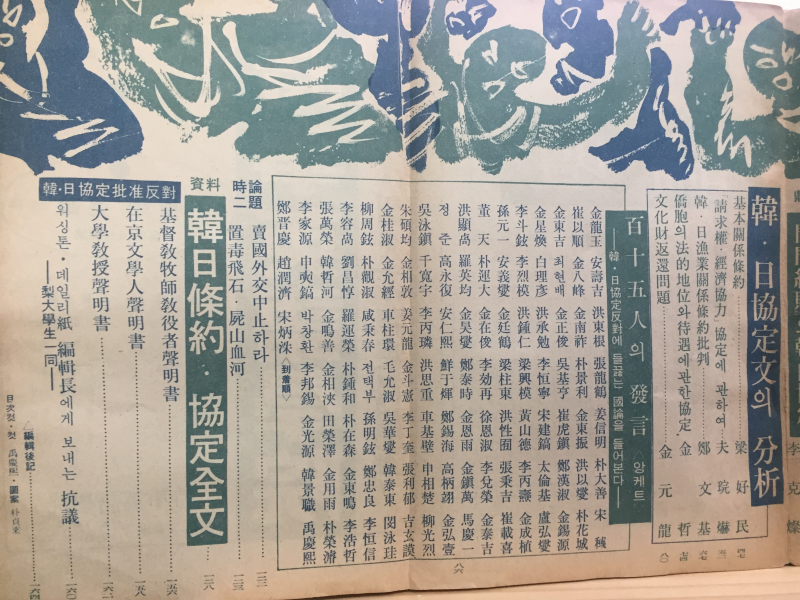 韓·日協定文의 分析
基本關係條約 梁好民
請求權·經濟協力 協定에 관하여 夫琓爀
韓·日漁業關係條約批判 鄭文基
僑胞의 法的地位와 待遇에 관한 協定 金哲
文化財返還問題 金元龍
百十五人의 發言 〈앙케트〉
──韓·日協定反對에 들끓는 國論을 들어본다──
金龍玉 安壽吉 洪東根 張龍鶴 姜信明 朴大善 宋稶
崔以順 金八峰 金南祚 朴景利 金東振 洪以燮 朴花城
金東吉 최현배 金正俊 吳基亨 崔虎鎭 鄭漢淑 金錫源
金星煥 白理彦 洪承勉 李恒寧 宋建鎬 太倫基 盧弘燮
李斗鉉 李烈模 洪鍾仁 梁興模 黃山德 李丙燾 金成植
孫元一 安義燮 金廷鶴 梁柱東 洪性囿 張秉吉 崔載喜
董天 朴運大 金在俊 李効再 徐恩淑 李兌榮 金泰吉
洪顯卨 羅英均 金昊燮 鄭泰時 金恩雨 金鎭萬 馬慶一
정준 高永復 安仁熙 鮮于煇 鄭錫海 高柄翊 金弘壹
吳泳鎭 千寬宇 李丙璘 洪思重 車基壁 申相楚 柳光烈
朱碩均 金相敦 姜元龍 金斗憲 李丁奎 張利郁 吉玄謨
金桂淑 金允經 車柱環 毛允淑 吳華燮 韓泰東 閔泳珪
柳周鉉 朴觀淑 咸秉春 전택부 孫明鉉 鄭忠良 李恒信
李容卨 劉昌惇 羅運榮 朴鍾和 朴在森 金東鳴 李浩哲
張萬榮 韓哲河 金鳴善 金相浹 田榮澤 金用雨 朴榮濬
李家源 申奭鎬 박창환 李邦錫 金光源 韓景職 禹慶熙
鄭晋慶 趙潤濟 宋炳洙 〈到着順〉
八六
論題 賣國外交中止하라
時二 置毒飛石·屍山血河
資料
韓日條約·協定全文
韓·日協定批准反對
基督敎牧師敎役者聲明書
在京文學人聲明書
大學敎授聲明書
워싱톤·데일리紙 編輯長에게 보내는 抗議
──梨大學生一同──
〈編輯後記〉
目次컷·컷 禹慶熙·圖案 朴貞東
李克燦